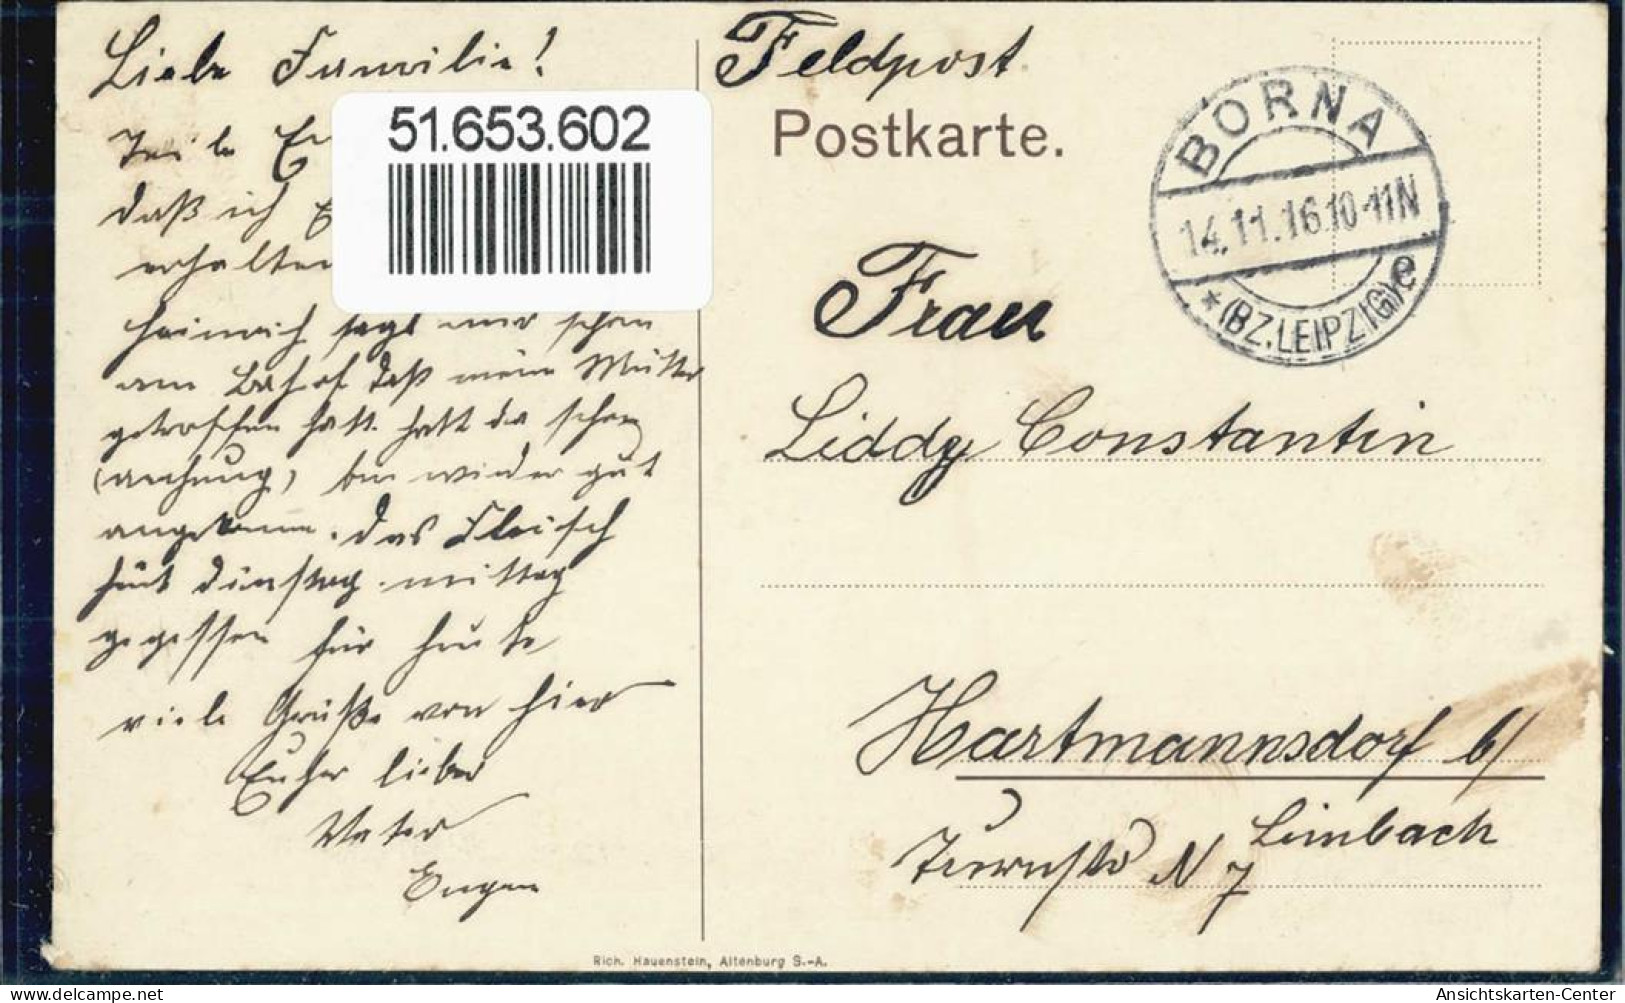 Liebe Familie!
Teile Eu
daß ich E
erhalten
51.653.602
Heinrich sagt mir schon
am Bahhof daß meine Mutter
getroffen hatt. hatt da schon
bin wieder gut
angekomm. das Fleisch
Dienstag mittag
gegessen für heute
viele Grüße von hier
Euher lieber
Vater
Eugen
Feldpost
Postkarte.
BORNA
14.11.16.10-11N
* (BZ.LEIPZIG) e
Frau
Liddy Constantin
Hartmannsdorf b/
Limbach
Turnstr N 7
Rich. Hauenstein, Altenburg S.-A.
delcampe.net
Ansichtskarten-Center